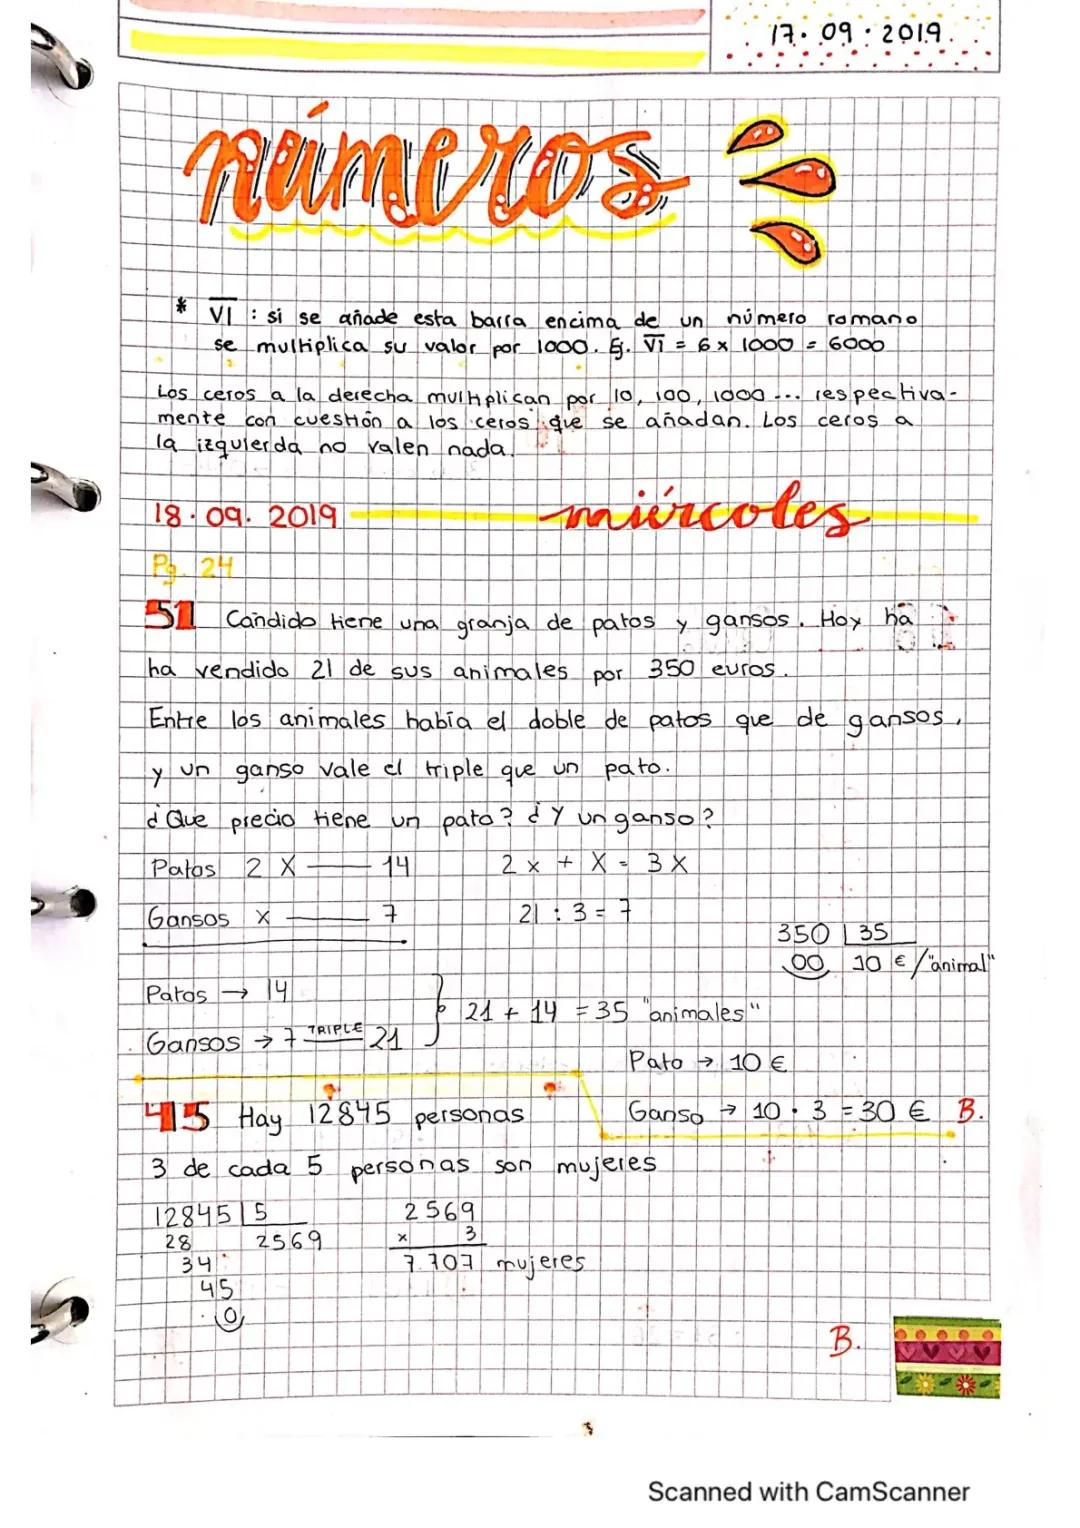 17.09.2019
números
* VI : si se añade esta barra encima de un número romano
se multiplica su valor por 1000. Ej. VI = 6 x 1000 = 6000
Los ceros a la derecha multiplican por 10, 100, 1000 ... respectiva-
mente con cuestión a los ceros que se añadan. Los ceros a
la izquierda no valen nada.
18.09.2019 miércoles
Pg. 24
51 Cándido tiene una granja de patos y gansos. Hoy ha
ha vendido 21 de sus animales por 350 euros.
Entre los animales había el doble de patos que de gansos,
y un ganso vale el triple que un pato.
¿Que precio tiene un pato? ¿Y un ganso?
Patos 2 X — 14 2x + X = 3X
Gansos x — 7 21 : 3 = 7
350 | 35
00 10 €/"animal"
Patos → 14
21 + 14 = 35 "animales"
Gansos → 7 TRIPLE 21
Pato → 10 €
Ganso → 10 · 3 = 30 € B.
45 Hay 12845 personas
3 de cada 5 personas son mujeres
12845 | 5 2569
28 2569 x 3
34 7.707 mujeres
45
0
B.
Scanned with CamScanner